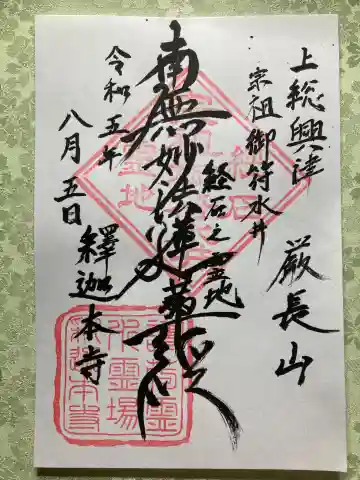 上総興津
厳長山
宗祖御符水井
経石之霊地
南無妙法蓮華経
令和五年
八月五日
釋迦本寺